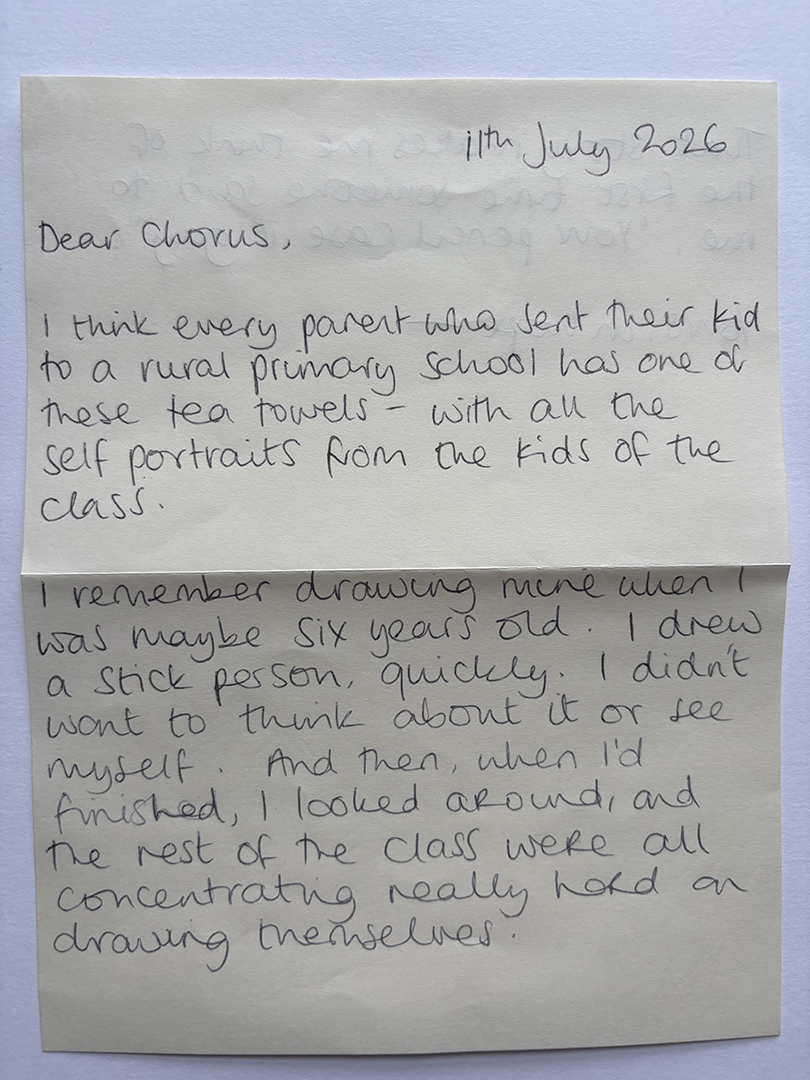 11th July 2026
Dear Chorus,
I think every parent who sent their kid
to a rural primary school has one of
these tea towels – with all the
self portraits from the kids of the
class.
I remember drawing mine when I
was maybe six years old. I drew
a stick person, quickly. I didn't
want to think about it or see
myself. And then, when I'd
finished, I looked around, and
the rest of the class were all
concentrating really hard on
drawing themselves.